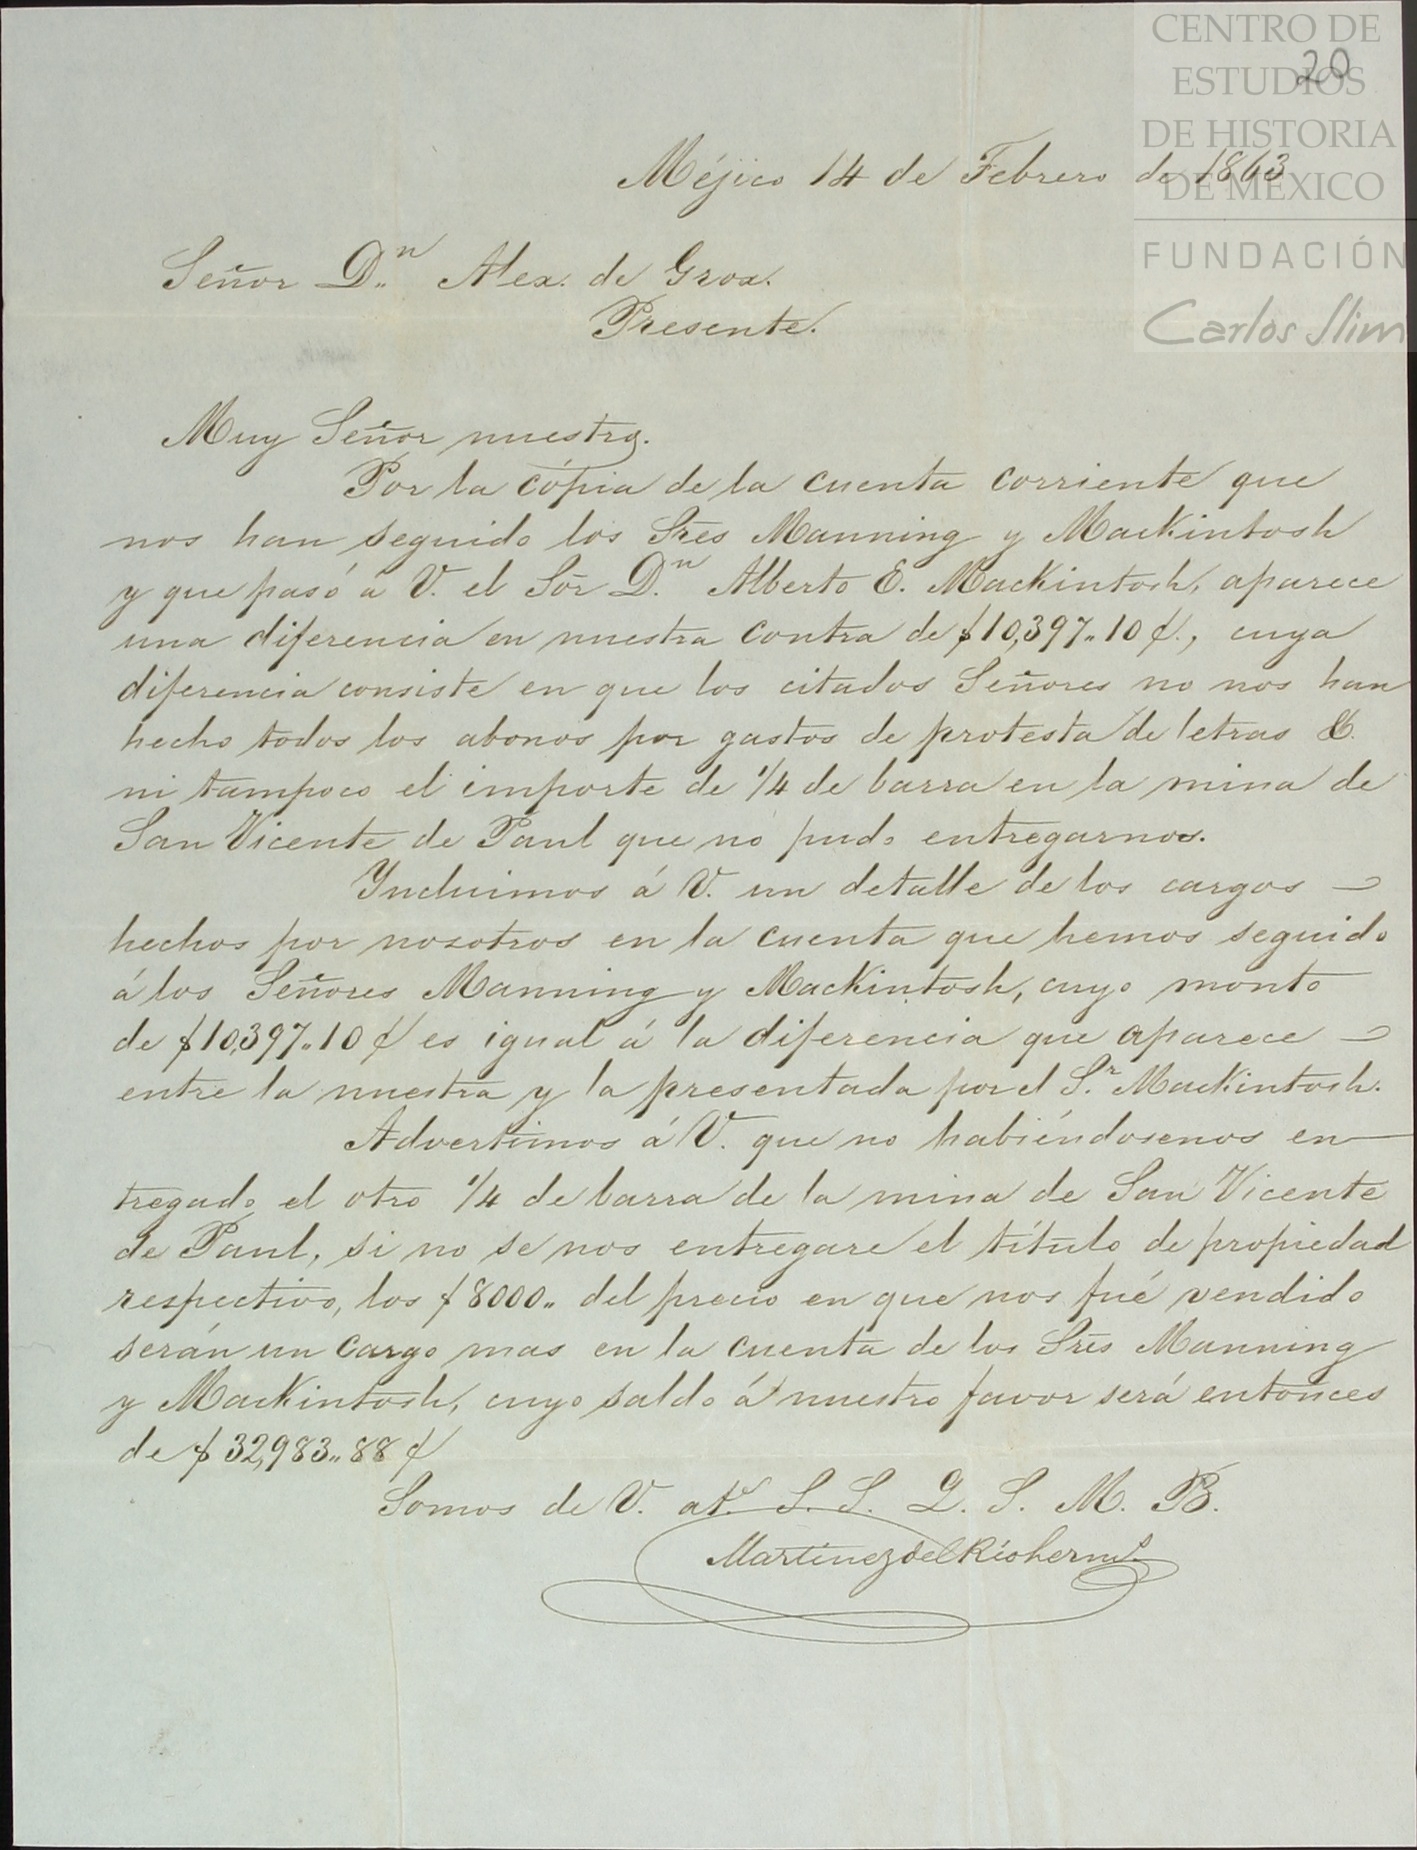 CENTRO DE
ESTUDIOS
DE HISTORIA
DE MÉXICO
FUNDACIÓN
Carlos Slim
20
Méjico 14 de Febrero de 1863
Señor D.n Alex. de Grox.
Presente.
Muy Señor nuestro.
Por la cópia de la cuenta corriente que
nos han seguido los Sres Manning y Mackintosh
y que pasó á V. el Sor D.n Alberto E. Mackintosh, aparece
una diferencia en nuestra contra de $10,397„10 ¢., cuya
diferencia consiste en que los citados Señores no nos han
hecho todos los abonos por gastos de protesta de letras &.
ni tampoco el importe de 1/4 de barra en la mina de
San Vicente de Paul que no pudo entregarnos.
Yncluimos á V. un detalle de los cargos
hechos por nosotros en la cuenta que hemos seguido
á los Señores Manning y Mackintosh, cuyo monto
de $10,397„10 ¢ es igual á la diferencia que aparece
entre la nuestra y la presentada por el S.r Mackintosh.
Advertimos á V. que no habiéndosenos en
tregado el otro 1/4 de barra de la mina de San Vicente
de Paul, si no se nos entregare el título de propiedad
respectivo, los $8000„ del precio en que nos fué vendido
serán un cargo mas en la cuenta de los Sres Manning
y Mackintosh, cuyo saldo á nuestro favor será entonces
de $32,983„88 ¢
Somos de V. at.s S. S. Q. S. M. B.
Martinez del Rio herms